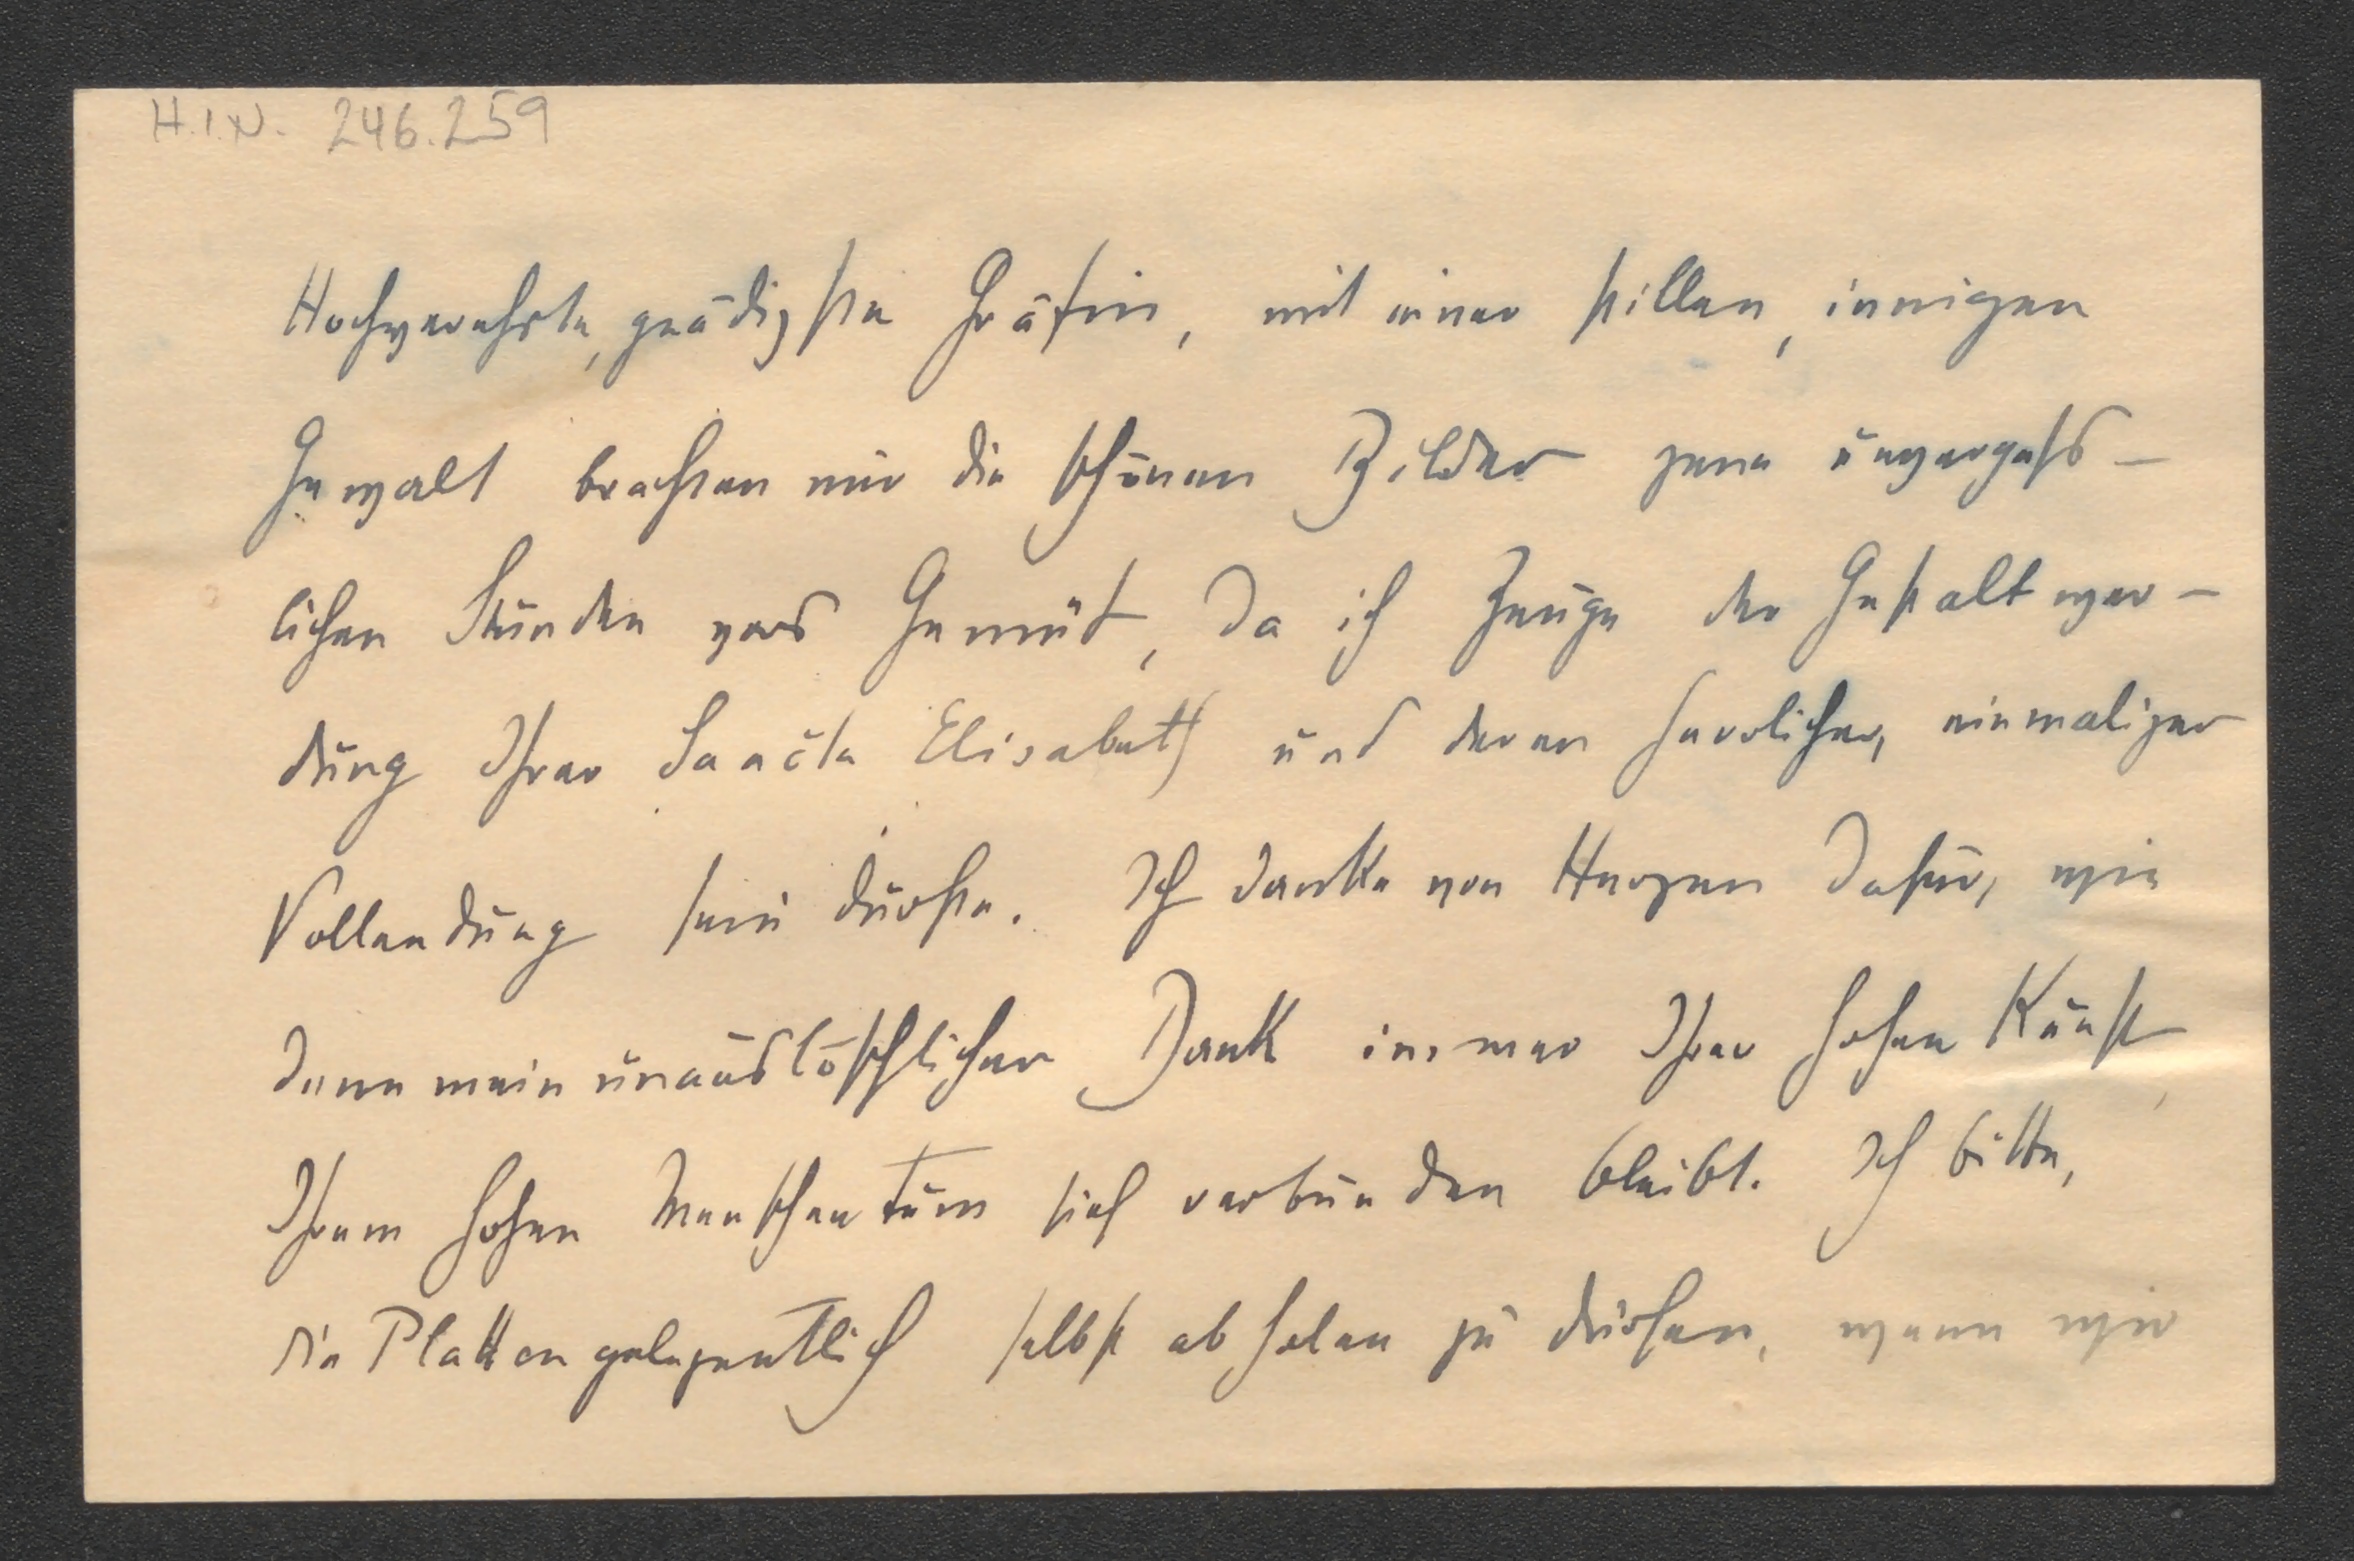 H.I.N. 246.259
Hochverehrte, gnädigste Gräfin, mit einer stillen, innigen
Gewalt brachten mir die schönen Bilder jene unvergess-
lichen Stunden vors Gemüt, da ich Zeuge der Gestaltwer-
dung Ihrer Sancta Elisabeth und deren herrlicher, einmaliger
Vollendung sein durfte. Ich danke von Herzen dafür, wie
denn mein unauslöschlicher Dank immer Ihrer hohen Kunst,
Ihrem hohen Menschentum sich verbunden bleibt. Ich bitte,
die Platten gelegentlich selbst abholen zu dürfen, wenn wir